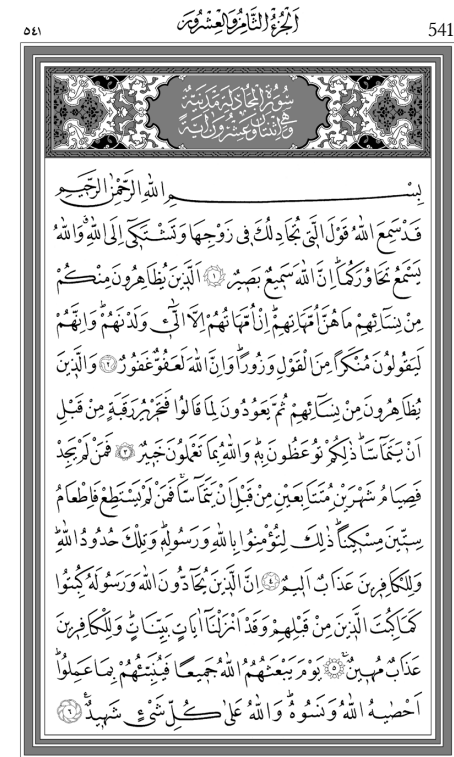 ٥٤١ اَلْجُزْءُ الثَّامِنُ وَالْعِشْرُونَ 541
سُورَةُ الْمُجَادَلَةِ مَدَنِيَّةٌ
وَهِيَ اثْنَتَانِ وَعِشْرُونَ اٰيَةً
بِسْمِ اللهِ الرَّحْمٰنِ الرَّحِيمِ
قَدْ سَمِعَ اللهُ قَوْلَ الَّتِي تُجَادِلُكَ فِي زَوْجِهَا وَتَشْتَكِٓي اِلَى اللهِۗ وَاللهُ
يَسْمَعُ تَحَاوُرَكُمَاۜ اِنَّ اللهَ سَمِيعٌ بَصِيرٌ ﴿١﴾ اَلَّذِينَ يُظَاهِرُونَ مِنْكُمْ
مِنْ نِسَٓائِهِمْ مَا هُنَّ اُمَّهَاتِهِمْۜ اِنْ اُمَّهَاتُهُمْ اِلَّا الّٰٓئِي وَلَدْنَهُمْۜ وَاِنَّهُمْ
لَيَقُولُونَ مُنْكَرًا مِنَ الْقَوْلِ وَزُورًاۜ وَاِنَّ اللهَ لَعَفُوٌّ غَفُورٌ ﴿٢﴾ وَالَّذِينَ
يُظَاهِرُونَ مِنْ نِسَٓائِهِمْ ثُمَّ يَعُودُونَ لِمَا قَالُوا فَتَحْرِيرُ رَقَبَةٍ مِنْ قَبْلِ
اَنْ يَتَمَٓاسَّاۜ ذٰلِكُمْ تُوعَظُونَ بِهِۜ وَاللهُ بِمَا تَعْمَلُونَ خَبِيرٌ ﴿٣﴾ فَمَنْ لَمْ يَجِدْ
فَصِيَامُ شَهْرَيْنِ مُتَتَابِعَيْنِ مِنْ قَبْلِ اَنْ يَتَمَٓاسَّاۚ فَمَنْ لَمْ يَسْتَطِعْ فَاِطْعَامُ
سِتِّينَ مِسْكِينًاۜ ذٰلِكَ لِتُؤْمِنُوا بِاللهِ وَرَسُولِهِۜ وَتِلْكَ حُدُودُ اللهِۜ
وَلِلْكَافِرِينَ عَذَابٌ اَلِيمٌ ﴿٤﴾ اِنَّ الَّذِينَ يُحَٓادُّونَ اللهَ وَرَسُولَهُ كُبِتُوا
كَمَا كُبِتَ الَّذِينَ مِنْ قَبْلِهِمْ وَقَدْ اَنْزَلْنَٓا اٰيَاتٍ بَيِّنَاتٍۜ وَلِلْكَافِرِينَ
عَذَابٌ مُهِينٌۚ ﴿٥﴾ يَوْمَ يَبْعَثُهُمُ اللهُ جَمِيعًا فَيُنَبِّئُهُمْ بِمَا عَمِلُواۜ
اَحْصٰيهُ اللهُ وَنَسُوهُۜ وَاللهُ عَلٰى كُلِّ شَيْءٍ شَهِيدٌ۟ ﴿٦﴾